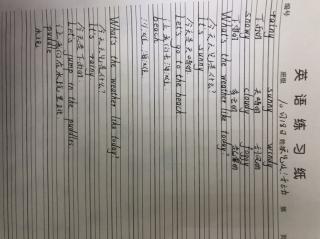 编号
英语练习纸
班级
rainy sunny windy
下雨的 天晴的 刮风的
snowy cloudy foggy
下雪的 多云的 起雾的
What's the weather like today?
今天天气是什么?
It's sunny
今天是天晴的
Let's go to the beach
让我们去海边
beach
沙滩、海边
What's the weather like today?
今天天气是什么?
It's rainy
今天是下雨的
Let's jump in the puddles.
puddle
水坑